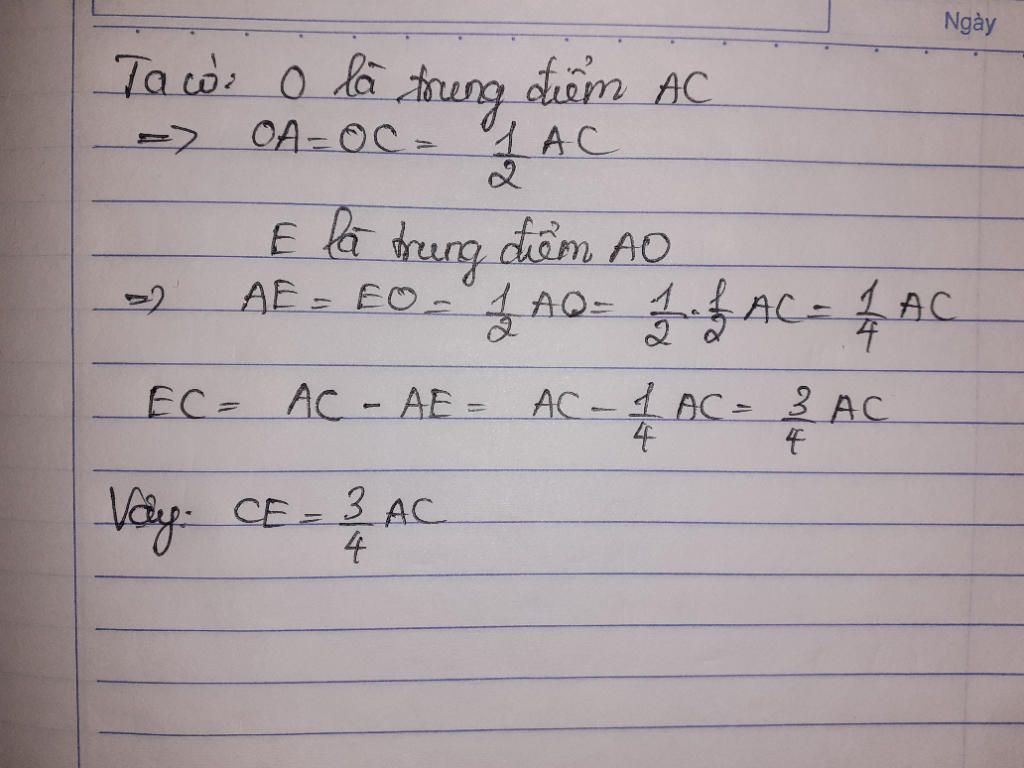 Ngày
Ta có: O là trung điểm AC
=> OA = OC = 1/2 AC
E là trung điểm AO
=> AE = EO = 1/2 AO = 1/2 . 1/2 AC = 1/4 AC
EC = AC - AE = AC - 1/4 AC = 3/4 AC
Vậy: CE = 3/4 AC